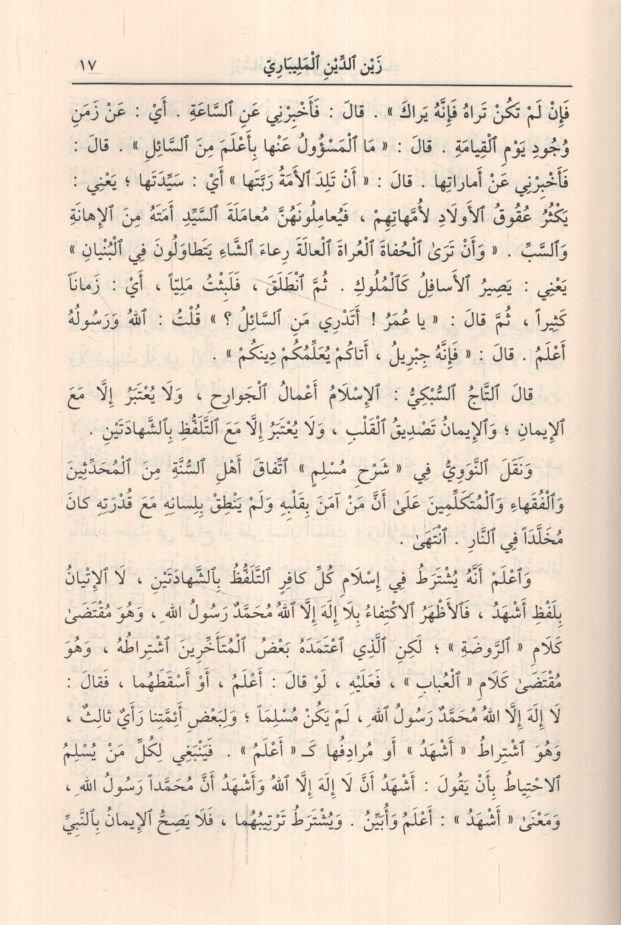 زَيْن ٱلدِّيْنِ ٱلْمَلِيبَارِيّ ١٧
فَإِنْ لَمْ تَكُنْ تَراهُ فَإِنَّهُ يَراكَ » . قالَ : فَأَخْبِرْنِي عَنِ ٱلسَّاعَةِ . أَيْ : عَنْ زَمَنِ
وُجُودِ يَوْمِ ٱلْقِيامَةِ . قالَ : « مَا ٱلْمَسْؤُولُ عَنْها بِأَعْلَمَ مِنَ ٱلسَّائِلِ » . قالَ :
فَأَخْبِرْنِي عَنْ أَماراتِها . قالَ : « أَنْ تَلِدَ ٱلأَمَةُ رَبَّتَها » أَيْ : سَيِّدَتَها ؛ يَعْنِي :
يَكْثُرُ عُقُوقُ ٱلأَوْلادِ لأُمَّهاتِهِمْ ، فَيُعامِلُونَهُنَّ مُعامَلَةَ ٱلسَّيِّدِ أَمَتَهُ مِنَ ٱلإِهانَةِ
وَٱلسَّبِّ . « وَأَنْ تَرَىٰ ٱلْحُفاةَ ٱلْعُراةَ ٱلْعالَةَ رِعاءَ ٱلشَّاءِ يَتَطاوَلُونَ فِي ٱلْبُنْيانِ »
يَعْنِي : يَصِيرُ ٱلأَسافِلُ كَٱلْمُلُوكِ . ثُمَّ ٱنْطَلَقَ ، فَلَبِثْتُ مَلِيّاً ، أَيْ : زَماناً
كَثِيراً ، ثُمَّ قالَ : « يا عُمَرُ ! أَتَدْرِي مَنِ ٱلسَّائِلُ ؟ » قُلْتُ : ٱللهُ وَرَسُولُهُ
أَعْلَمُ . قالَ : « فَإِنَّهُ جِبْرِيلُ ، أَتاكُمْ يُعَلِّمُكُمْ دِينَكُمْ » .
قالَ ٱلتَّاجُ ٱلسُّبْكِيُّ : ٱلإِسْلامُ أَعْمالُ ٱلْجَوارِحِ ، وَلَا يُعْتَبَرُ إِلَّا مَعَ
ٱلإِيمانِ ؛ وَٱلإِيمانُ تَصْدِيقُ ٱلْقَلْبِ ، وَلَا يُعْتَبَرُ إِلَّا مَعَ ٱلتَّلَفُّظِ بِٱلشَّهادَتَيْنِ .
وَنَقَلَ ٱلنَّوَوِيُّ فِي « شَرْحِ مُسْلِمٍ » ٱتِّفاقَ أَهْلِ ٱلسُّنَّةِ مِنَ ٱلْمُحَدِّثِينَ
وَٱلْفُقَهاءِ وَٱلْمُتَكَلِّمِينَ عَلَىٰ أَنَّ مَنْ آمَنَ بِقَلْبِهِ وَلَمْ يَنْطِقْ بِلِسانِهِ مَعَ قُدْرَتِهِ كانَ
مُخَلَّداً فِي ٱلنَّارِ . ٱنْتَهَىٰ .
وَٱعْلَمْ أَنَّهُ يُشْتَرَطُ فِي إِسْلامِ كُلِّ كافِرٍ ٱلتَّلَفُّظُ بِٱلشَّهادَتَيْنِ ، لَا ٱلإِتْيانُ
بِلَفْظِ أَشْهَدُ ، فَٱلأَظْهَرُ ٱلاكْتِفاءُ بِلَا إِلَهَ إِلَّا ٱللهُ مُحَمَّدٌ رَسُولُ ٱللهِ ، وَهُوَ مُقْتَضَىٰ
كَلَامِ « ٱلرَّوْضَةِ » ؛ لَكِنِ ٱلَّذِي ٱعْتَمَدَهُ بَعْضُ ٱلْمُتَأَخِّرِينَ ٱشْتِراطُهُ ، وَهُوَ
مُقْتَضَىٰ كَلَامِ « ٱلْعُبابِ » ، فَعَلَيْهِ ، لَوْ قالَ : أَعْلَمُ ، أَوْ أَسْقَطَهُما ، فَقالَ :
لَا إِلَهَ إِلَّا ٱللهُ مُحَمَّدٌ رَسُولُ ٱللهِ ، لَمْ يَكُنْ مُسْلِماً ؛ وَلِبَعْضِ أَئِمَّتِنا رَأْيٌ ثالِثٌ ،
وَهُوَ ٱشْتِراطُ « أَشْهَدُ » أَو مُرادِفُها كَـ « أَعْلَمُ » . فَيَنْبَغِي لِكُلِّ مَنْ يُسْلِمُ
ٱلاحْتِياطُ بِأَنْ يَقُولَ : أَشْهَدُ أَنَّ لَا إِلَهَ إِلَّا ٱللهُ وَأَشْهَدُ أَنَّ مُحَمَّداً رَسُولُ ٱللهِ ،
وَمَعْنَىٰ « أَشْهَدُ » : أَعْلَمُ وَأُبَيِّنُ . وَيُشْتَرَطُ تَرْتِيبُهُما ، فَلَا يَصِحُّ ٱلإِيمانُ بِٱلنَّبِيِّ